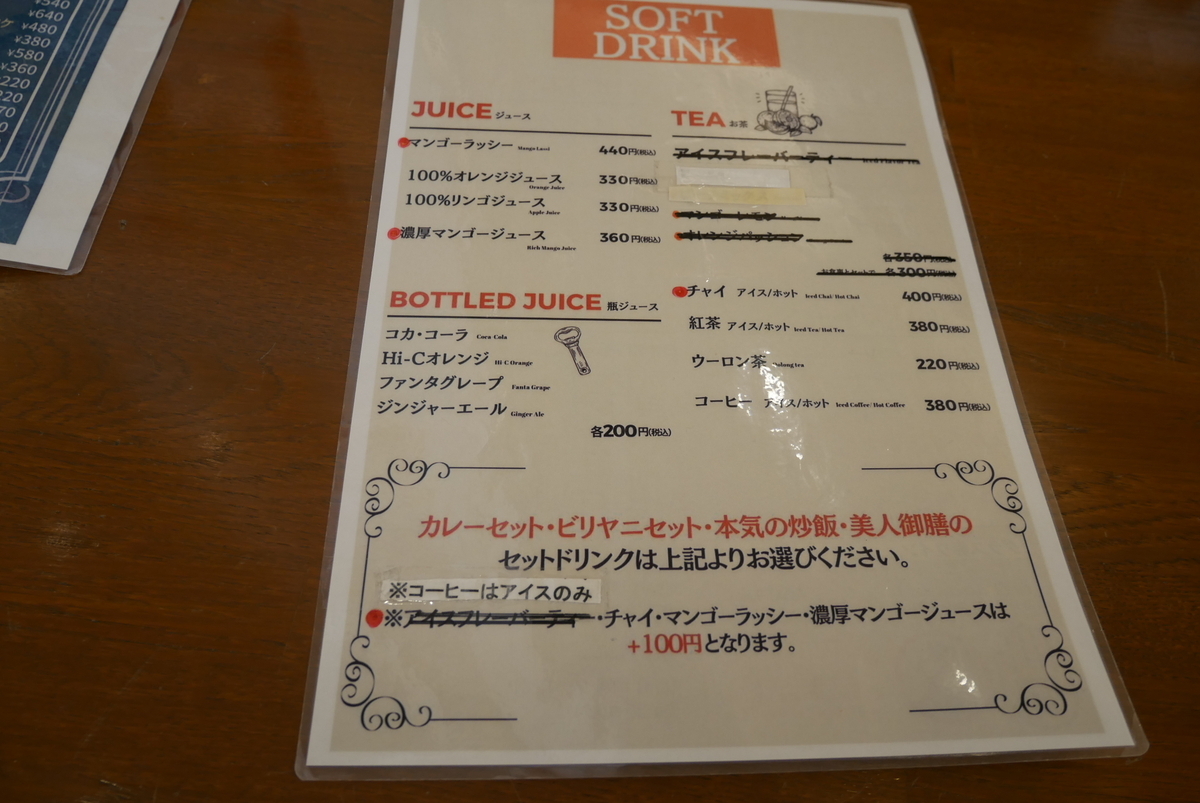 ¥540
¥640
¥480
¥380
¥580
¥360
220
220
70
SOFT
DRINK
JUICE ジュース
マンゴーラッシー Mango Lassi 440円(税込)
100%オレンジジュース 330円(税込)
Orange Juice
100%リンゴジュース 330円(税込)
Apple Juice
濃厚マンゴージュース 360円(税込)
Rich Mango Juice
BOTTLED JUICE 瓶ジュース
コカ・コーラ Coca Cola
Hi-Cオレンジ Hi-C Orange
ファンタグレープ Fanta Grape
ジンジャーエール Ginger Ale
各200円(税込)
TEA お茶
アイスフレーバーティー
マンゴーレモン
オレンジパッション
各350円(税込)
お食事とセットで 各300円(税込)
チャイ アイス/ホット Iced Chai/ Hot Chai 400円(税込)
紅茶 アイス/ホット Iced Tea/ Hot Tea 380円(税込)
ウーロン茶 Oolong tea 220円(税込)
コーヒー アイス/ホット Iced Coffee/ Hot Coffee 380円(税込)
カレーセット・ビリヤニセット・本気の炒飯・美人御膳の
セットドリンクは上記よりお選びください。
※コーヒーはアイスのみ
※アイスフレーバーティー・チャイ・マンゴーラッシー・濃厚マンゴージュースは
+100円となります。